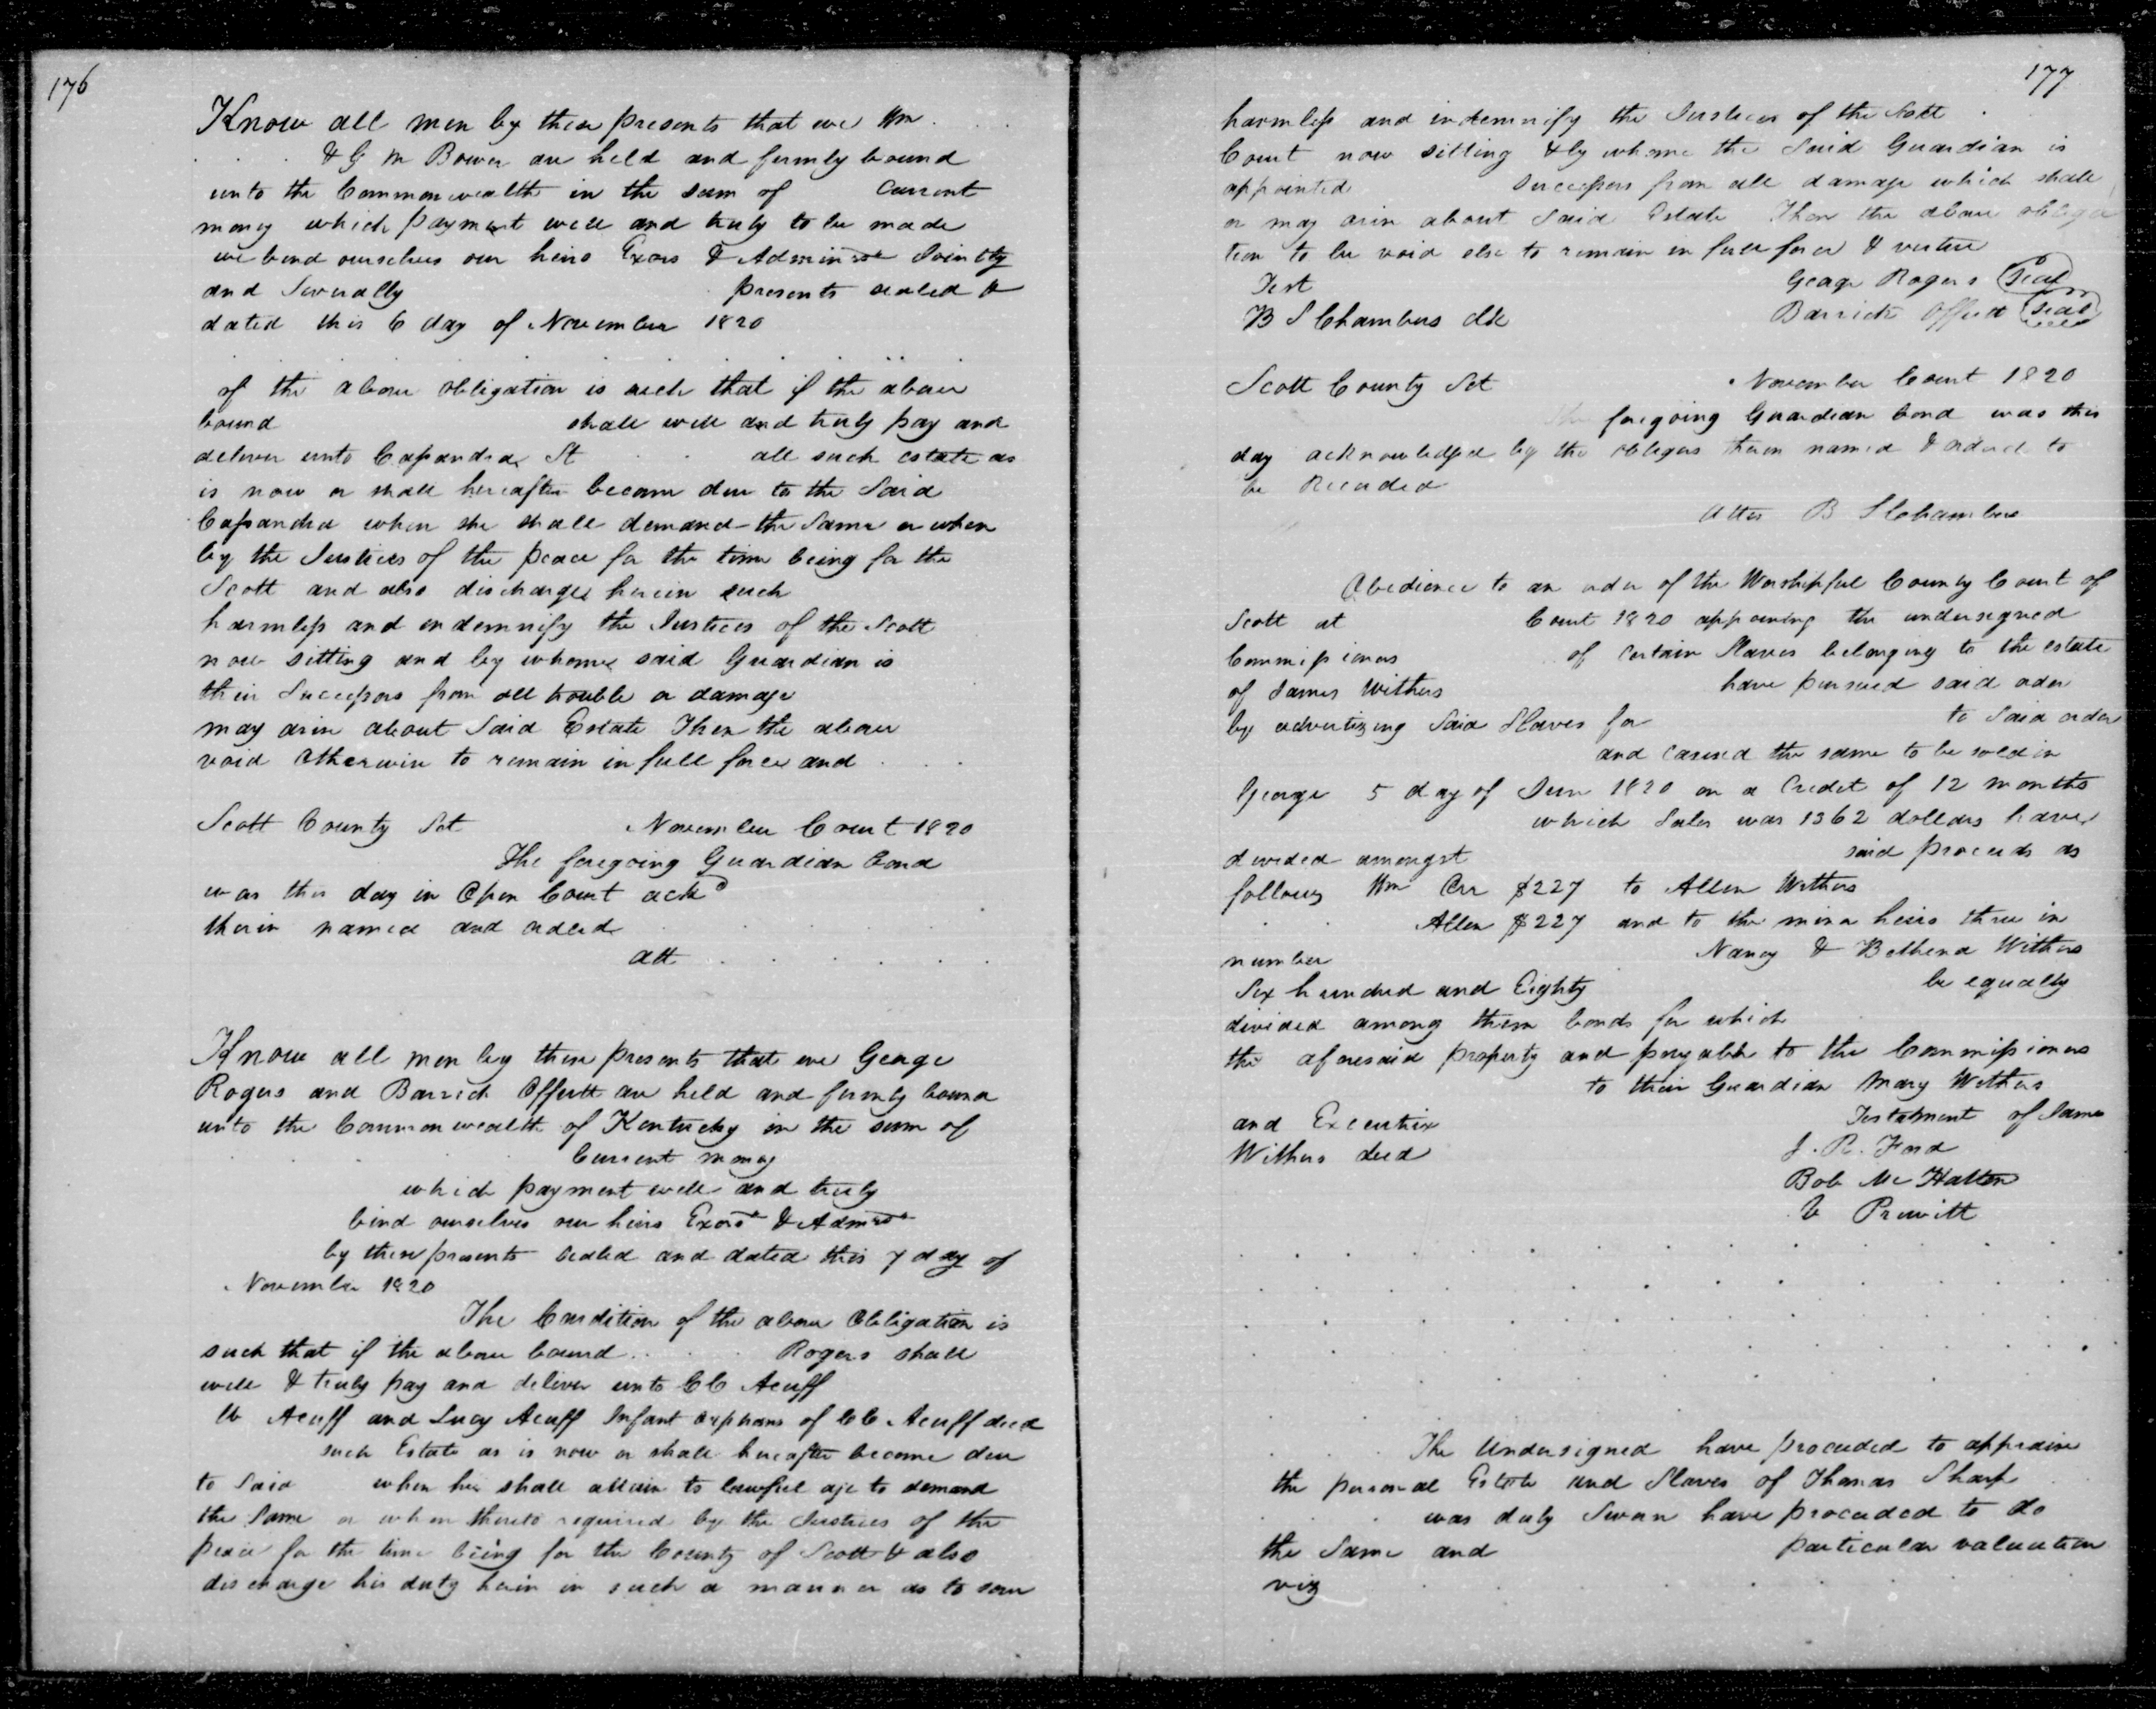 176
Know all men by these presents that we Wm
& G M Bower are held and firmly bound
unto the Commonwealth in the sum of Current
money which payment well and truly to be made
we bind ourselves our heirs Exors & Adminrs Jointly
and Severally presents sealed &
dated this 6 day of November 1820
of the above obligation is such that if the above
bound shall well and truly pay and
deliver unto Cassandra St all such estate as
is now or shall hereafter become due to the Said
Cassandra when she shall demand the Same or when
by the Justices of the peace for the time being for the
Scott and also discharges herein such
harmless and indemnify the Justices of the Scott
now sitting and by whome said Guardian is
their Successors from all trouble or damage
may arise about Said Estate Then the above
void Otherwise to remain in full force and
Scott County Sct November Court 1820
The foregoing Guardian bond
was this day in Open Court ackd
therein named and ordered
att
Know all men by these presents that we George
Rogers and Barrick Offutt are held and firmly bound
unto the Commonwealth of Kentucky in the sum of
Current money
which payment well and truly
bind ourselves our heirs Exors & Admrs
by these presents sealed and dated this 7 day of
November 1820
The Condition of the above Obligation is
such that if the above bound Rogers shall
well & truly pay and deliver unto CC Acuff
Acuff and Lucy Acuff Infant orphans of CC Acuff decd
such Estate as is now or shall hereafter become due
to Said when he shall attain to lawful age to demand
the Same or when thereto required by the Justices of the
peace for the time being for the County of Scott & also
discharge his duty herein in such a manner as to save
177
harmless and indemnify the Justices of the Scott
Court now sitting & by whome the Said Guardian is
appointed Successors from all damage which shall
or may arise about Said Estate Then the above obliga
tion to be void else to remain in full force & vertue
Test George Rogers Seal
B S Chambers clk Barrick Offutt Seal
Scott County Sct November Court 1820
The foregoing Guardian bond was this
day acknowledged by the obligors therein named & ordered to
be Recorded
Attes B S Chambers
Obedience to an order of the Worshipful County Court of
Scott at Court 1820 appoining the undersigned
Commissioners of Certain Slaves belonging to the estate
of James Withers have pursued said order
by advertizing Said Slaves for to Said order
and caused the same to be sold in
George 5 day of June 1820 on a Credit of 12 months
which Sales was 1362 dollars have
devided amongst said proceeds as
follows Wm Orr $227 to Allen Withers
Allen $227 and to the minor heirs three in
number Nancy & Bethena Withers
Six hundred and Eighty be equally
divided among them bonds for which
the aforesaid property and payable to the Commissioners
to their Guardian Mary Withers
and Executrix Testatment of James
Withers decd J. R. Ford
Bob Mc Hatton
V Prewitt
The Undersigned have proceeded to appraise
the personal Estate and Slaves of Thomas Sharp
was duly Sworn have proceeded to do
the Same and particular valuation
viz